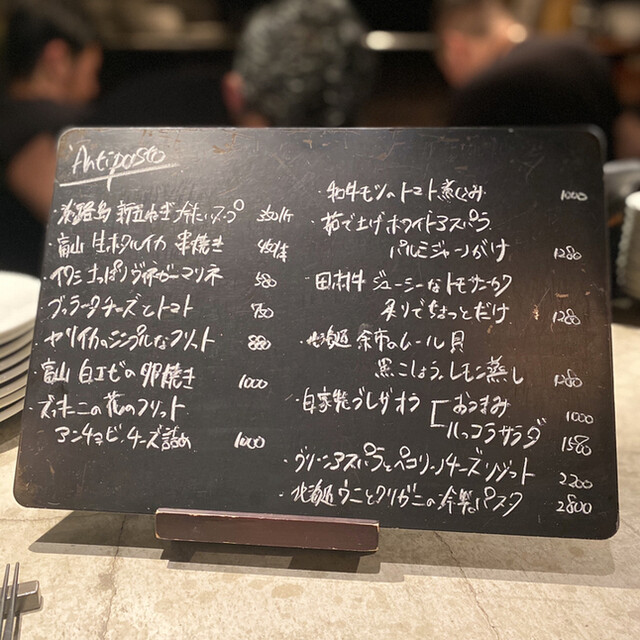 Antipasto
・淡路島 新玉ねぎ 冷たいスープ 350/1杯
・富山 生ホタルイカ 串焼き 450/本
・イワシ さっぱりヴィネガーマリネ 580
・ブッラータチーズとトマト 780
・ヤリイカのシンプルなフリット 880
・富山 白エビの卵焼き 1000
・ズッキーニの花のフリット
アンチョビ、チーズ詰め 1000
・和牛モツのトマト煮込み 1000
・茹で上げホワイトアスパラ
パルミジャーノがけ 1280
・田村牛 ジューシーなトモサンカク
炙りでちょっとだけ 1280
・北海道 余市のムール貝
黒こしょう、レモン蒸し 1280
・自家製ブレザオラ [ おつまみ 1000
ルッコラサラダ 1580
・グリーンアスパラとペコリーノチーズリゾット 2200
・北海道ウニとクリガニの冷製パスタ 2800